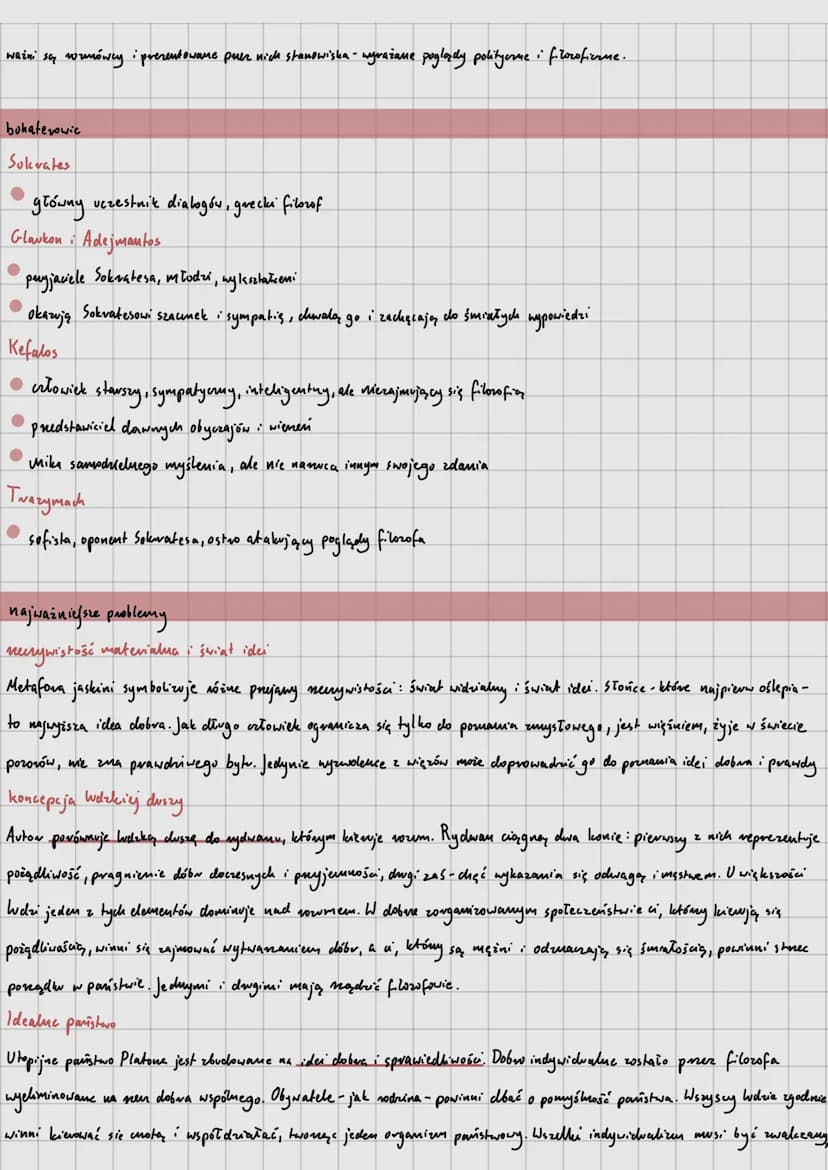 ważni są rozmówcy i prezentowane przez nich stanowiska - wyrażane poglądy polityczne i filozoficzne.
bohaterowie
Sokrates
główny uczestnik dialogów, grecki filozof
Glaukon i Adejmantos
przyjaciele Sokratesa, młodzi, wykształceni
okazują Sokratesowi szacunek i sympatię, chwalą go i zachęcają do śmiałych wypowiedzi
Kefalos
człowiek starszy, sympatyczny, inteligentny, ale niezajmujący się filozofią
przedstawiciel dawnych obyczajów i wierzeń
unika samodzielnego myślenia, ale nie narzuca innym swojego zdania
Trazymach
sofista, oponent Sokratesa, ostro atakujący poglądy filozofa
najważniejsze problemy
rzeczywistość materialna i świat idei
Metafora jaskini symbolizuje różne przejawy rzeczywistości: świat widzialny i świat idei. Słońce - które najpierw oślepia -
to najwyższa idea dobra. Jak długo człowiek ogranicza się tylko do poznania zmysłowego, jest więźniem, żyje w świecie
pozorów, nie zna prawdziwego bytu. Jedynie wyzwolenie z więzów może doprowadzić go do poznania idei dobra i prawdy
koncepcja ludzkiej duszy
Autor porównuje ludzką duszę do rydwanu, którym kieruje rozum. Rydwan ciągną dwa konie: pierwszy z nich reprezentuje
pożądliwość, pragnienie dóbr doczesnych i przyjemności, drugi zaś - chęć wykazania się odwagą i męstwem. U większości
ludzi jeden z tych elementów dominuje nad rozumem. W dobrze zorganizowanym społeczeństwie ci, którzy kierują się
pożądliwością, winni się zajmować wytwarzaniem dóbr, a ci, którzy są mężni i odznaczają się śmiałością, powinni strzec
porządku w państwie. Jednymi i drugimi mają rządzić filozofowie.
Idealne państwo
Utopijne państwo Platona jest zbudowane na idei dobra i sprawiedliwości. Dobro indywidualne zostało przez filozofa
wyeliminowane na rzecz dobra wspólnego. Obywatele - jak rodzina - powinni dbać o pomyślność państwa. Wszyscy ludzie zgodnie
winni kierować się cnotą i współdziałać, tworząc jeden organizm państwowy. Wszelki indywidualizm musi być zwalczany,